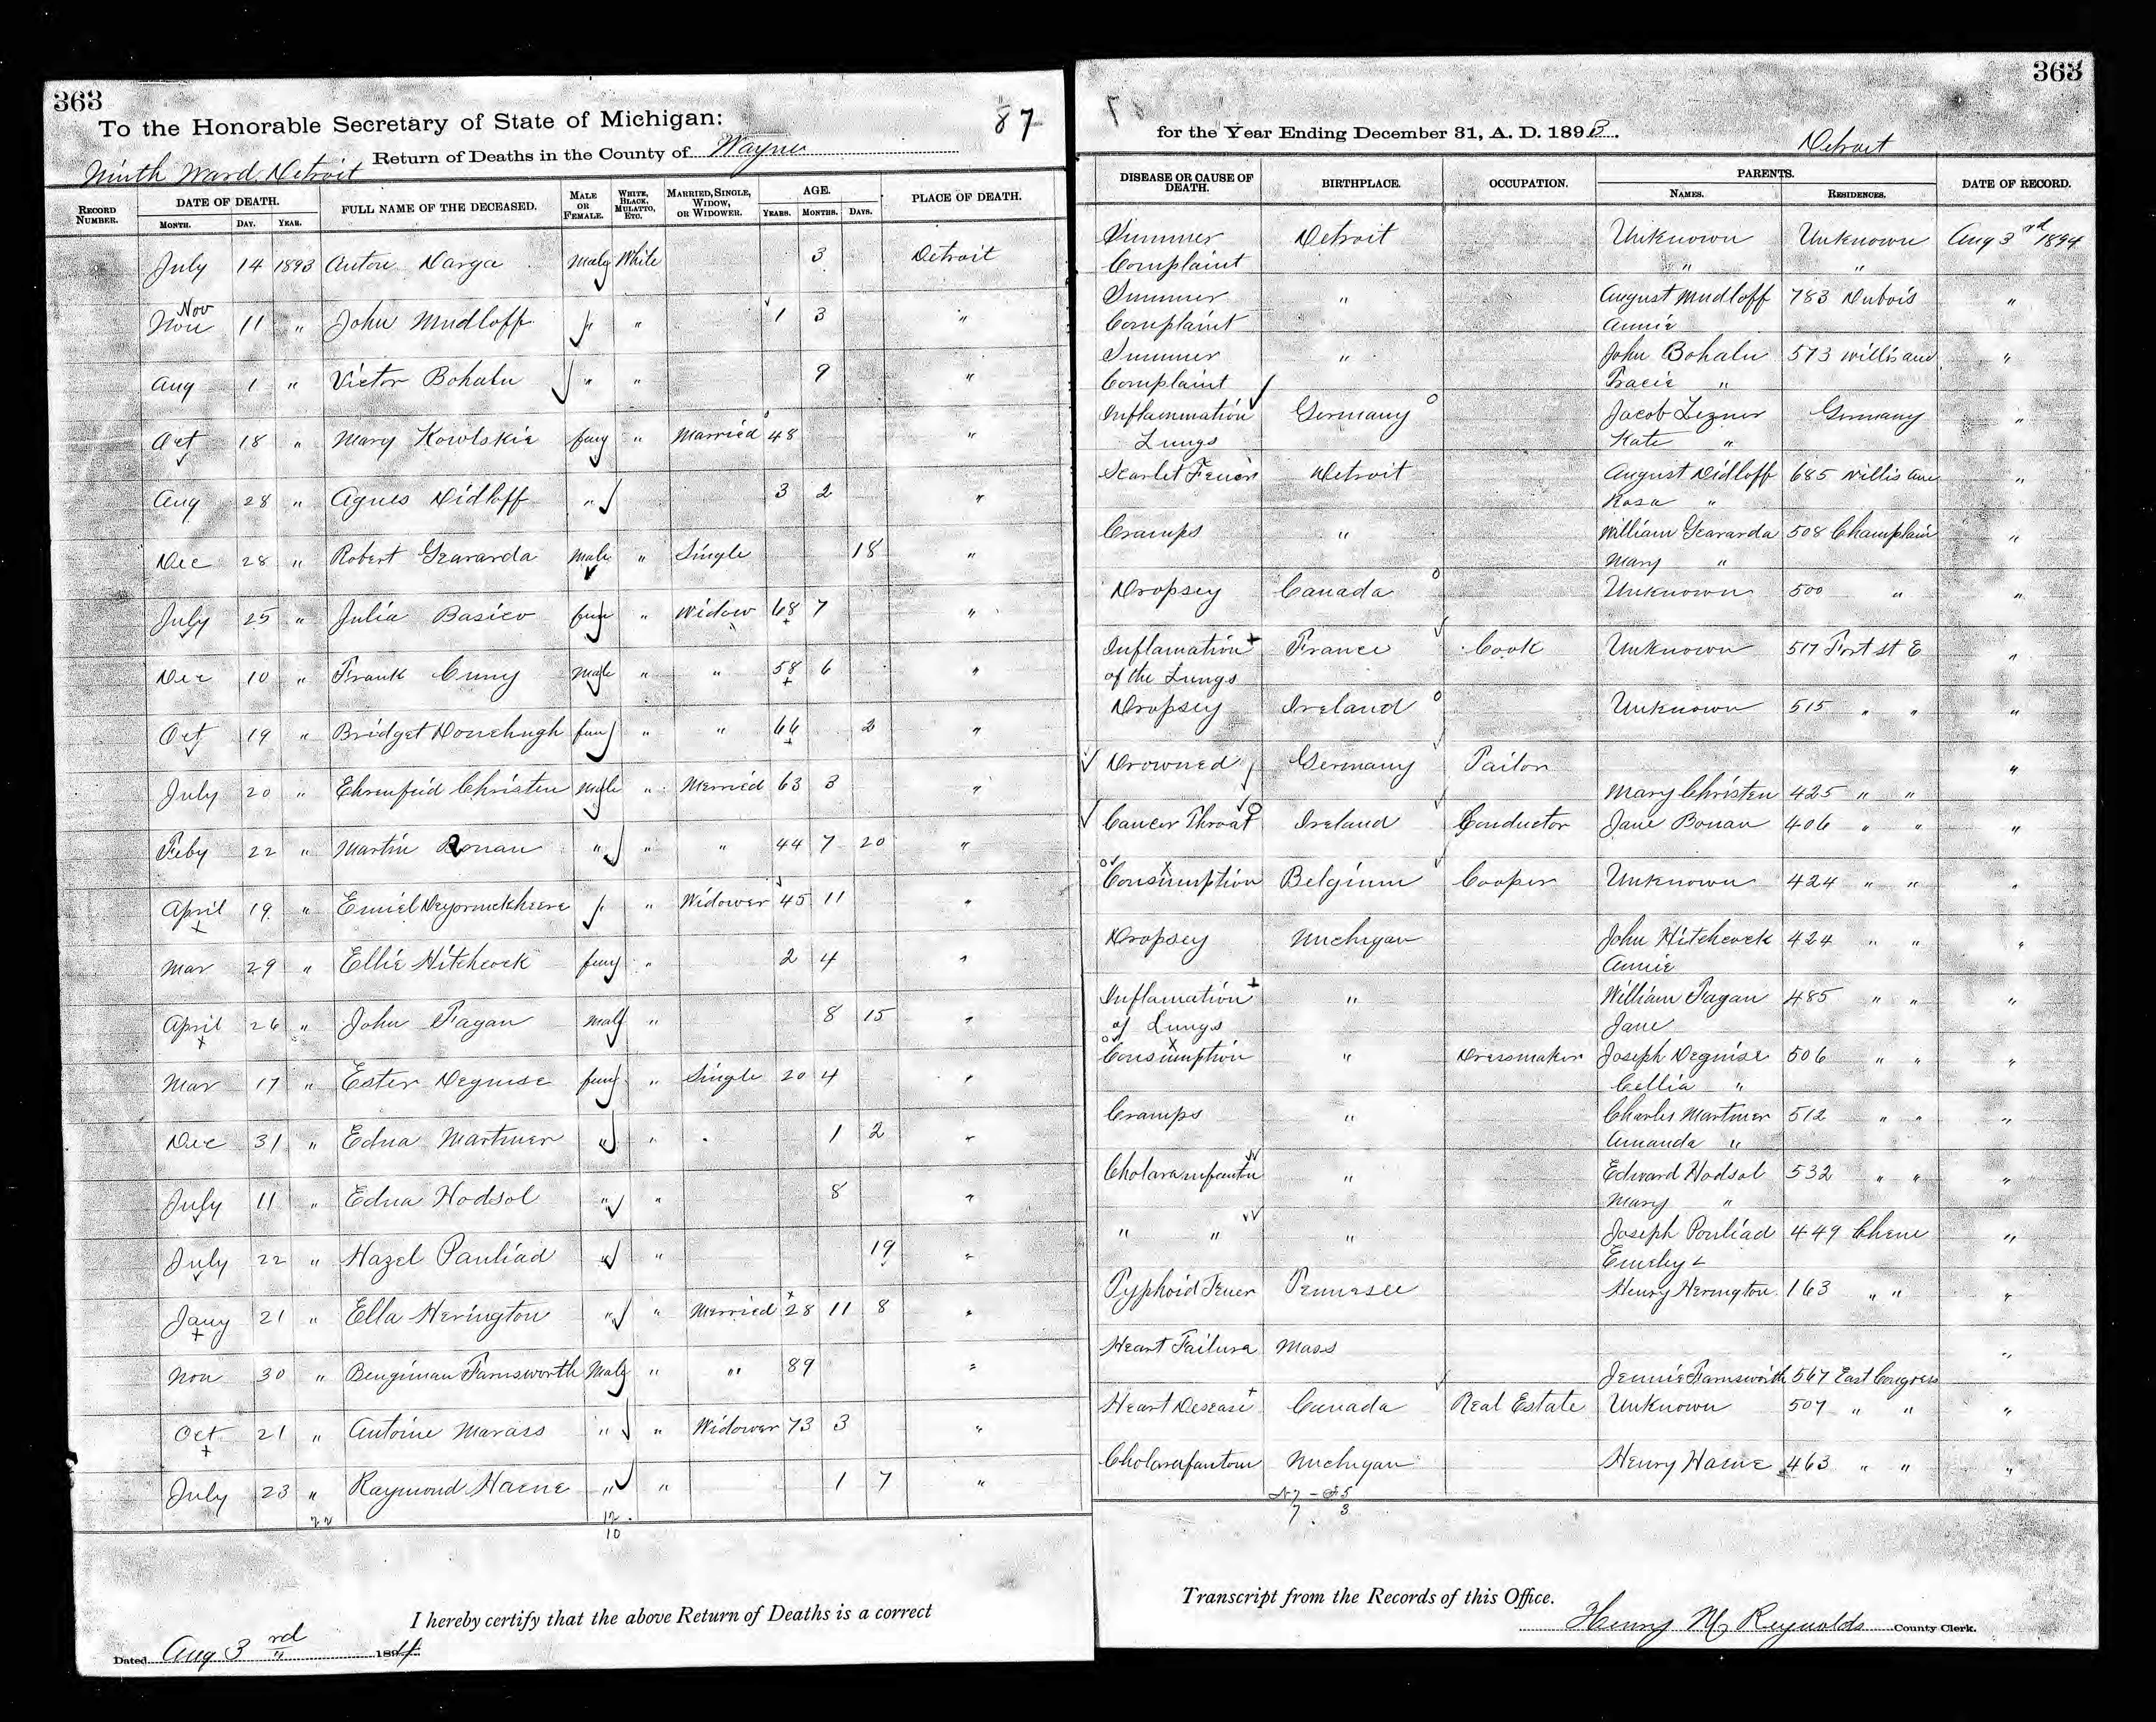 363
To the Honorable Secretary of State of Michigan:
87
Return of Deaths in the County of Wayne
Ninth Ward Detroit
RECORD NUMBER. DATE OF DEATH. MONTH. DAY. YEAR. FULL NAME OF THE DECEASED. MALE OR FEMALE. WHITE, BLACK, MULATTO, ETC. MARRIED, SINGLE, WIDOW, OR WIDOWER. AGE. YEARS. MONTHS. DAYS. PLACE OF DEATH.
July 14 1893 Anton Darga Male White 3 Detroit
Nov
Nov 11 " John Mudloff " " 1 3 "
Aug 1 " Victor Bohalu " " 9 "
Oct 18 " Mary Kowlskie fem " Married 48 "
Aug 28 " Agnes Didloff " 3 2 "
Dec 28 " Robert Gravarda Male " Single 18 "
July 25 " Julia Basico fem " Widow 68 7 "
Dec 10 " Frank Cuny Male " " 58 6 "
Oct 19 " Bridget Donehugh fem " " 66 2 "
July 20 " Ehrenfrid Christen Male " Married 63 3 "
Feby 22 " Martin Ronan " " " 44 7 20 "
April 19 " Emiel " " Widower 45 11 "
Mar 29 " Ellie Hitchcock fem " 2 4 "
April 26 " John Fagan Male " 8 15 "
Mar 17 " Ester Deguise fem " Single 20 4 "
Dec 31 " Edna Martmer " " 1 2 "
July 11 " Edna Hodsol " " 8 "
July 22 " Hazel Pauliad " " 19 "
Jany 21 " Ella Herington " " Married 28 11 8 "
Nov 30 " Bengiman Farnsworth Male " " 89 "
Oct 21 " Antoine Marass " " Widower 73 3 "
July 23 " Raymond Haene " " 1 7 "
22 12
10
I hereby certify that the above Return of Deaths is a correct
Dated Aug 3rd 1894.
363
for the Year Ending December 31, A. D. 1893.
Detroit
DISEASE OR CAUSE OF DEATH. BIRTHPLACE. OCCUPATION. PARENTS. NAMES. RESIDENCES. DATE OF RECORD.
Summer Detroit Unknown Unknown Aug 3rd 1894
Complaint " "
Summer " August Mudloff 783 Dubois "
Complaint Annie
Summer " John Bohalu 573 Willis ave "
Complaint Tracie "
Inflammation Germany Jacob Lezner Germany "
Lungs Kate "
Scarlet Fever Detroit August Didloff 685 Willis ave "
Rosa "
Cramps " William Gravarda 508 Champlain "
Mary "
Dropsey Canada Unknown 500 " "
Inflamation France Cook Unknown 517 Fort St E "
of the Lungs
Dropsey Ireland Unknown 515 " " "
Drowned Germany Tailor "
Mary Christen 425 " "
Cancer Throat Ireland Conductor Jane Bonan 406 " " "
Consumption Belgium Cooper Unknown 424 " " "
Dropsey Michigan John Hitchcock 424 " " "
Annie
Inflamation " William Fagan 485 " " "
of Lungs Jane
Consumption " Dressmaker Joseph Deguise 506 " " "
Cellia "
Cramps " Charles Martmer 512 " " "
Amanda "
Cholara infantum " Edward Hodsol 532 " " "
Mary "
" " " Joseph Pouliad 449 Chene "
Emeley
Typhoid Fever Tennesee Henry Herington 163 " " "
Heart Failure Mass "
Jennie Farnsworth 567 East Congress
Heart Desease Canada Real Estate Unknown 507 " " "
Cholarafantum Michigan Henry Haene 463 " " "
7 3
Transcript from the Records of this Office.
Henry M Reynolds County Clerk.